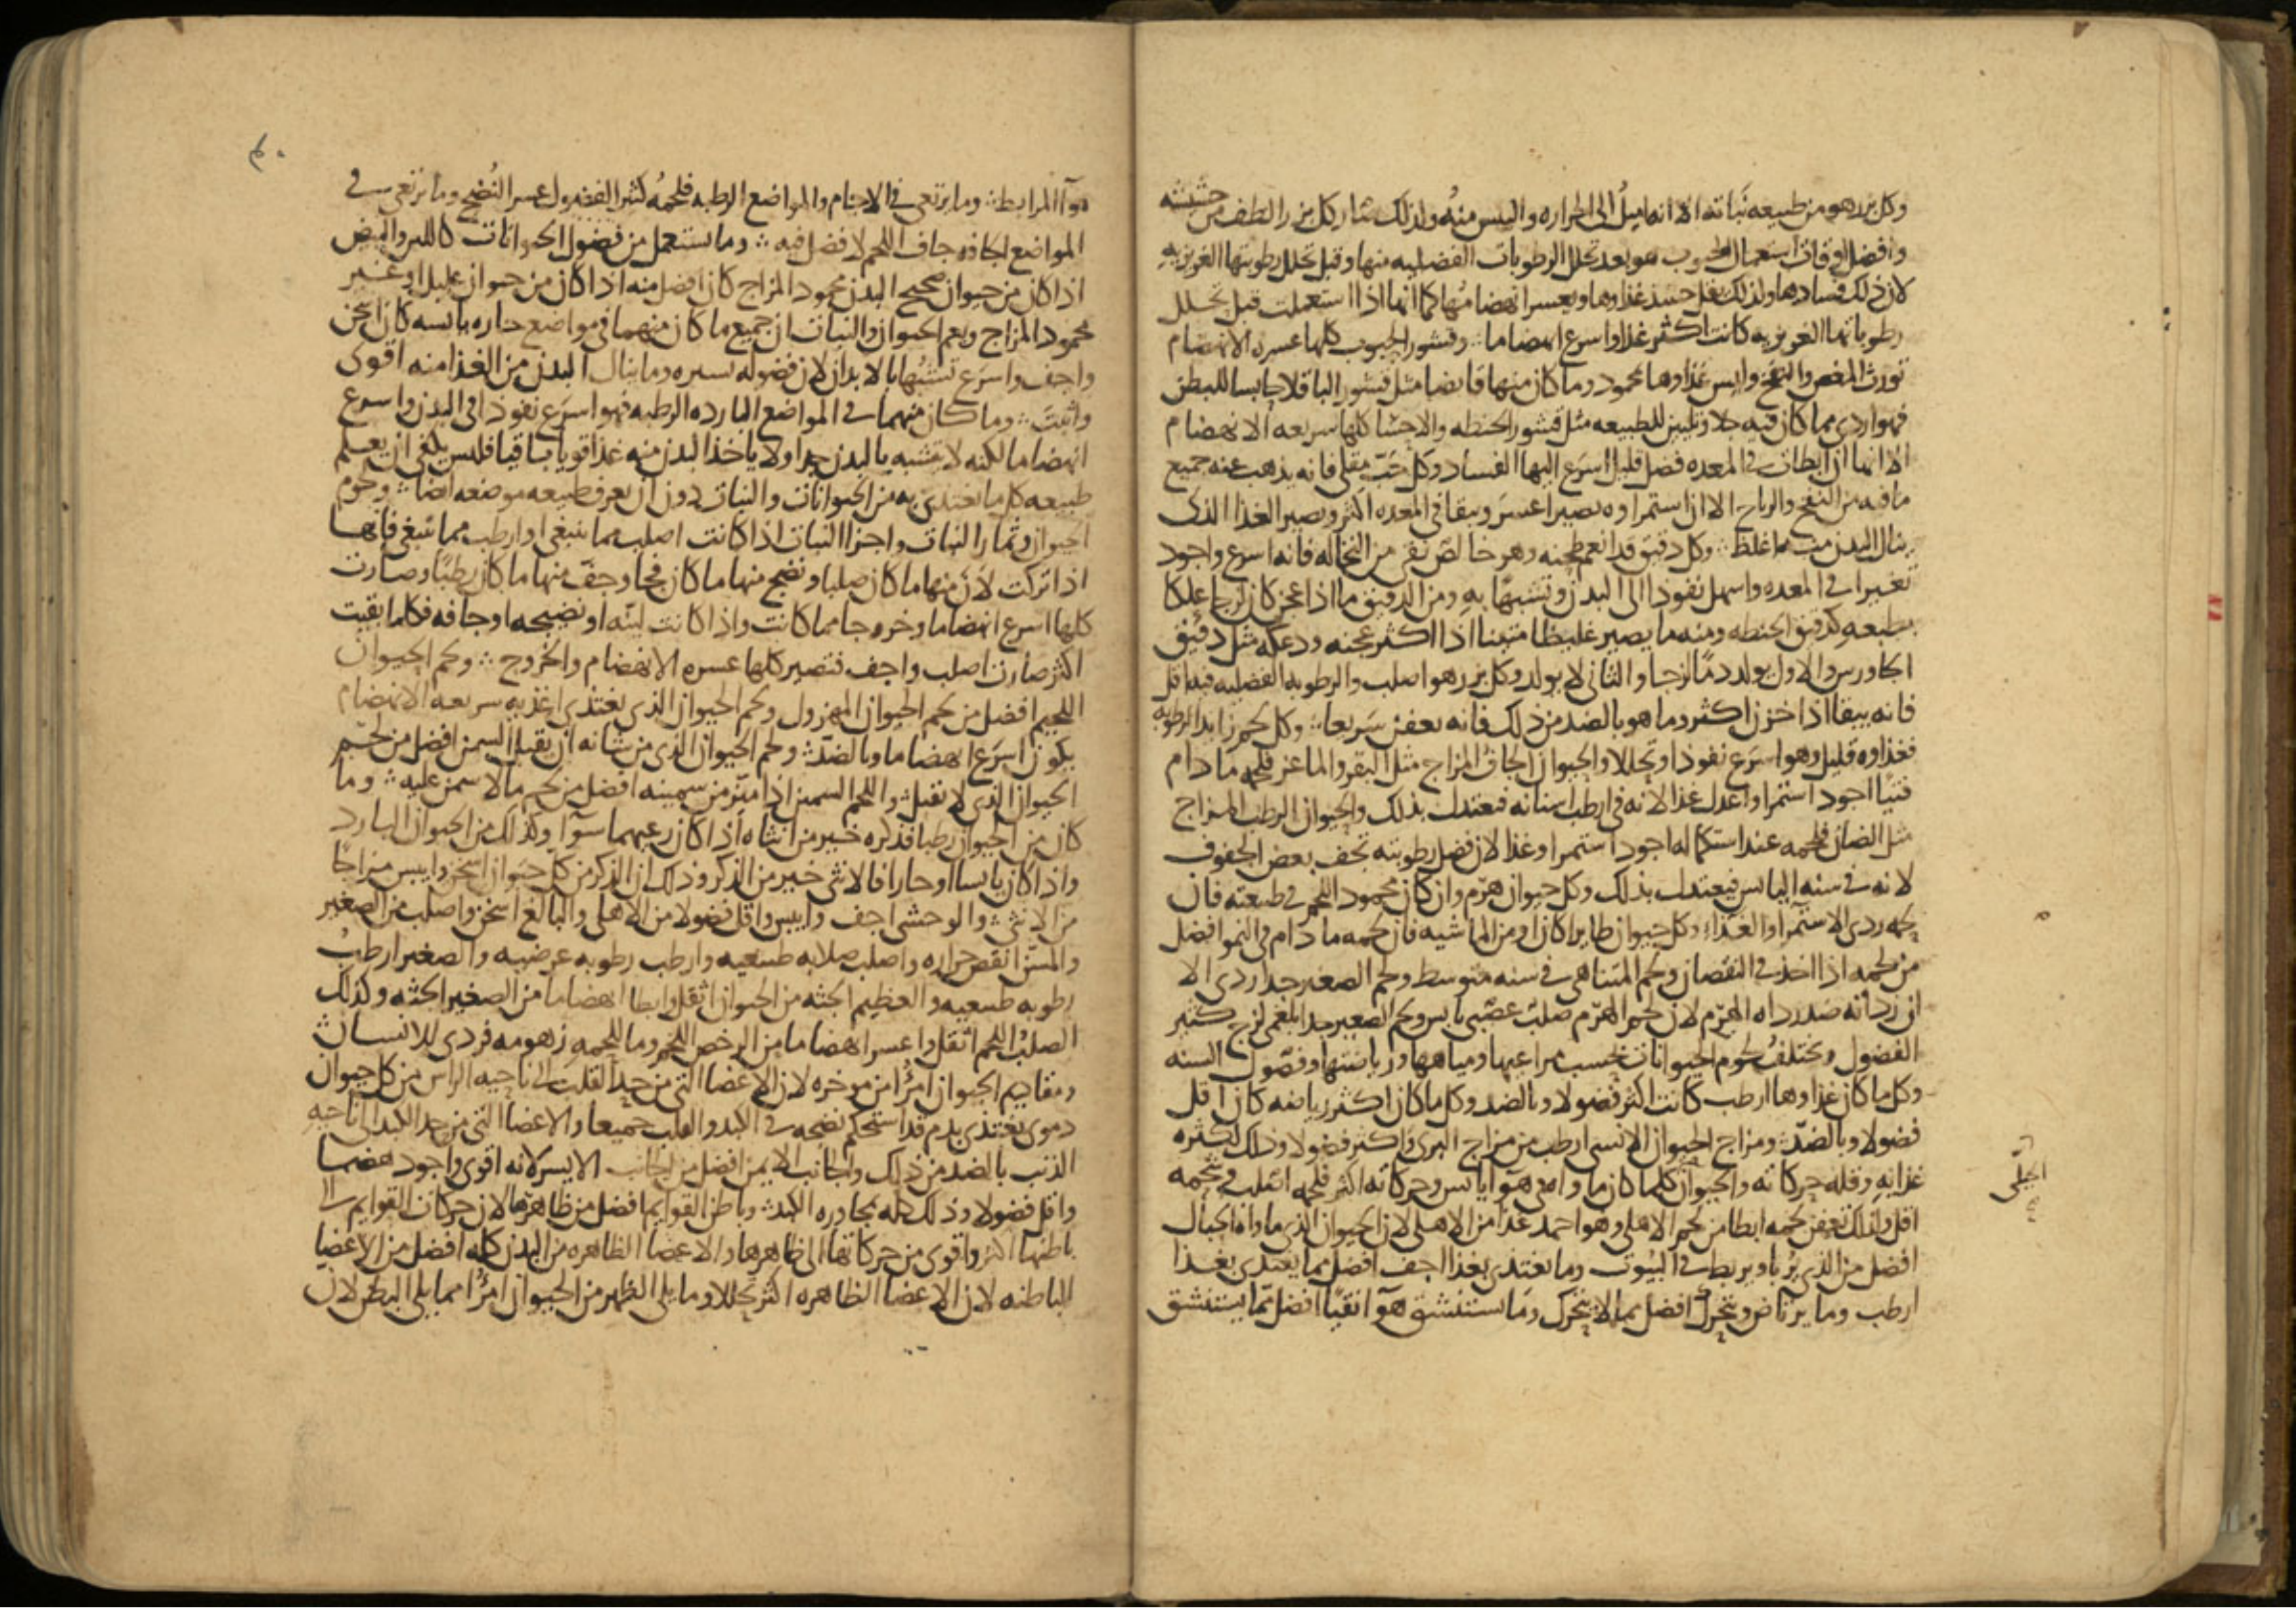 وكل بزر هو من طبيعه نباته الا انه اميل الى الحراره واليبس منه ولذلك صار كل بزر الطف من حشيشه
وافضل اوقات استعمال الحبوب هو بعد تحلل الرطوبات الفضليه منها وقبل تحلل رطوبتها الغريزيه
لان ذلك فسادها ولذلك يقل حينئذ غذاوها ويعسر انهضامها كما انها اذا استعملت قبل تحلل
رطوباتها الغريزيه كانت اكثر غذا واسرع انهضاما وقشور الحبوب كلها عسره الانهضام
تورث المغص والنفخ وليس غذاوها محمود وما كان منها قابضا مثل قشور الباقلا حابسا للبطن
فهو اردى مما كان فيه جلا وتليين للطبيعه مثل قشور الحنطه والاحشا كلها سريعه الانهضام
الا انها ان ابطات في المعده فضل قليل اسرع اليها الفساد وكل حب مقلي فانه يذهب عنه جميع
ما فيه من النفخ والرياح الا ان استمراوه يصير اعسر ويبقا في المعده اكثر ويصير الغذا الذى
ينال البدن منه اغلظ وكل دقيق قد انعم طحنه وهو خالص نقى من النخاله فانه اسرع واجود
تغييرا في المعده واسهل نفوذا الى البدن وتشبها به ومن الدقيق ما اذا عجن كان لزجا علكا
بطبعه كدقيق الحنطه ومنه ما يصير غليظا متينا اذا اكثر عجنه ودعكه مثل دقيق
الجاورس والاول يولد دما لزجا والثانى لا يولد وكل بزر هو اصلب والرطوبه الفضليه فيه اقل
فانه يبقا اذا خزن اكثر وما هو بالضد من ذلك فانه يعفن سريعا وكل لحم زايد الرطوبه
فغذاوه قليل وهو اسرع نفوذا وتحللا والحيوان الجاف المزاج مثل البقر والماعز فلحمه ما دام
فتيا اجود استمرا واعدل غذا لانه في ارطب اسنانه فيعتدل بذلك والحيوان الرطب المزاج
مثل الضان فلحمه عند استكماله اجود استمرا وغذا لان فضل رطوبته تجف بعض الجفوف
لانه في سنه اليابس فيعتدل بذلك وكل حيوان هرم وان كان محمود اللحم في طبيعته فان
لحمه ردى الاستمرا والغذاء وكل حيوان طايرا كان او من الماشيه فان لحمه ما دام في النمو افضل
من لحمه اذا اخذ في النقصان ولحم المتناهى في سنه متوسط ولحم الصغير جدا ردى الا
ان رداته ضد رداه الهرم لان لحم الهرم صلب عصبى يابس ولحم الصغير جدا بلغمى لزج كثير
الفضول وتختلف لحوم الحيوانات بحسب مراعيها ومياهها ورياضتها وفصول السنه
وكل ما كان غذاوها ارطب كانت اكثر فضولا وبالضد وكل ما كان اكثر رياضه كان اقل
فضولا وبالضد ومزاج الحيوان الانسى ارطب من مزاج البرى واكثر فضولا وذلك لكثره
غذايه وقله حركاته والحيوان كلما كان ماواه في هوا يابس وحركاته اكثر فلحمه اصلب وشحمه
اقل ولذلك تعفن لحمه ابطا من لحم الاهلى وهو احمد غذا من الاهلى لان الحيوان الذى ماواه الجبال
افضل من الذى يربا ويربط في البيوت وما يغتدى بغذا اجف افضل مما يغتدى بغذا
ارطب وما يرتاض ويتحرك افضل مما لا يتحرك وما يستنشق هوآ انقيا افضل مما يستنشق
الجبلى
هوآ المرابط وما يرتعى في الاجام والمواضع الرطبه فلحمه كثير الفضول عسر النضج وما يرتعى في
المواضع الجافه جاف اللحم لا فضل فيه وما يستعمل من فضول الحيوانات كاللبن والبيض
اذا كان من حيوان صحيح البدن محمود المزاج كان افضل منه اذا كان من حيوان عليل او غير
محمود المزاج ويعم الحيوان والنبات ان جميع ما كان منهما في مواضع حاره يابسه كان اسخن
واجف واسرع تشبها بالابدان لان فضوله يسيره وما ينال البدن من الغذا منه اقوى
واثبت وما كان منهما في المواضع البارده الرطبه فهو اسرع نفوذا في البدن واسرع
انهضاما لكنه لا يتشبه بالبدن جدا ولا ياخذ البدن منه غذا قويا باقيا فليس يكفى ان يعلم
طبيعه كل ما يغتدى به من الحيوانات والنبات دون ان يعرف طبيعه موضعه ايضا ولحوم
الحيوان وثمار النبات واجزا النبات اذا كانت اصلب مما ينبغى او ارطب مما ينبغى فانها
اذا تركت لان منها ما كان صلبا ونضج منها ما كان فجا وجف منها ما كان رطبا وصارت
كلها اسرع انهضاما وخروجا مما كانت واذا كانت لينه او نضيجه او جافه فكلما بقيت
اكثر صارت اصلب واجف فتصير كلها عسره الانهضام والخروج ولحم الحيوان
اللحيم افضل من لحم الحيوان المهزول ولحم الحيوان الذى يغتذى اغذيه سريعه الانهضام
يكون اسرع انهضاما وبالضد ولحم الحيوان الذى من شانه ان يقبل السمن افضل من لحم
الحيوان الذى لا يقبل واللحم السمين اذا ميز من سمينه افضل من لحم ما لا سمن عليه وما
كان من الحيوان رطبا فذكره خير من انثاه اذا كان رعيهما سوآ وكذلك من الحيوان البارد
واذا كان يابسا او حارا فالانثى خير من الذكر وذلك ان الذكر من كل حيوان اسخن وايبس مزاجا
من الانثى والوحشى اجف وايبس واقل فضولا من الاهلى والبالغ اسخن واصلب من الصغير
والمسن انقص حراره واصلب صلابه طبيعيه وارطب رطوبه عرضيه والصغير ارطب
رطوبه طبيعيه والعظيم الجثه من الحيوان اثقل وابطا انهضاما من الصغير الجثه وكذلك
الصلب اللحم اثقل واعسر انهضاما من الرخص اللحم وما للحمه زهومه فردى للانسان
ومقاديم الحيوان امرا من موخره لان الاعضا التى من حد القلب الى ناحيه الراس من كل حيوان
دموى يغتذى بدم قد استحكم نضجه في الكبد والقلب جميعا والاعضا التى من حد الكبد الى ناحيه
الذنب بالضد من ذلك والجانب الايمن افضل من الجانب الايسر لانه اقوى واجود هضما
واقل فضولا وذلك كله بمجاوره الكبد وباطن القوايم افضل من ظاهرها لان حركات القوايم الى
باطنها اكثر واقوى من حركاتها الى ظاهرها والاعضا الظاهره من البدن كله افضل من الاعضا
الباطنه لان الاعضا الظاهره اكثر تحللا وما يلى الظهر من الحيوان امرا مما يلى البطن لان